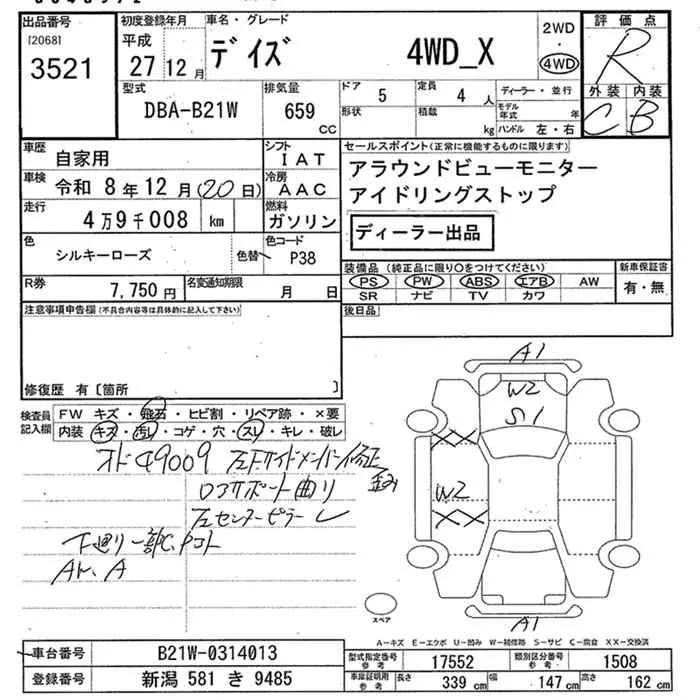 出品番号
[2068]
3521
初度登録年月
平成
27 12 月
車名・グレード
デイズ 4WD_X
2WD
・
4WD
評価点
R
外装 内装
C B
型式
DBA-B21W
排気量
659
CC
ドア
5
定員
4 人
形状
積載
kg
ディーラー・並行
モデル年式 年
ハンドル 左・右
車歴
自家用
シフト
IAT
車検
令和 8年 12月(20日)
冷房
AAC
走行
4万9千008 km
燃料
ガソリン
色
シルキーローズ
色替
色コード
P38
R券
7,750円
名変通知期限
月 日
セールスポイント(正常に機能するものに限ります)
アラウンドビューモニター
アイドリングストップ
ディーラー出品
装備品(純正品に限り○をつけてください)
PS PW ABS エアB AW
SR ナビ TV カワ
新車保証書
有・無
後日品
注意事項申告欄(不具合内容等は具体的に記入して下さい)
修復歴 有〔箇所 〕
検査員記入欄
FW キズ・飛石・ヒビ割・リペア跡・×要
内装・キズ・汚レ・コゲ・穴・スレ・キレ・破レ
オド49009 左Fサイドメンバー修正
歪み
ロアサポート曲り
左センターピラー 〃
下廻り一部C、Pコト
AH、A
A1
W2
S1
XX
W2
XX
A1
スペア
A-キズ E-エクボ U-凹み W-補修跡 S-サビ C-腐食 XX-交換済
車台番号
B21W-0314013
登録番号
新潟 581 き 9485
型式指定番号
参考
17552
類別区分番号
参考
1508
車庫証明用
参考
長さ
339 cm
幅
147 cm
高さ
162 cm